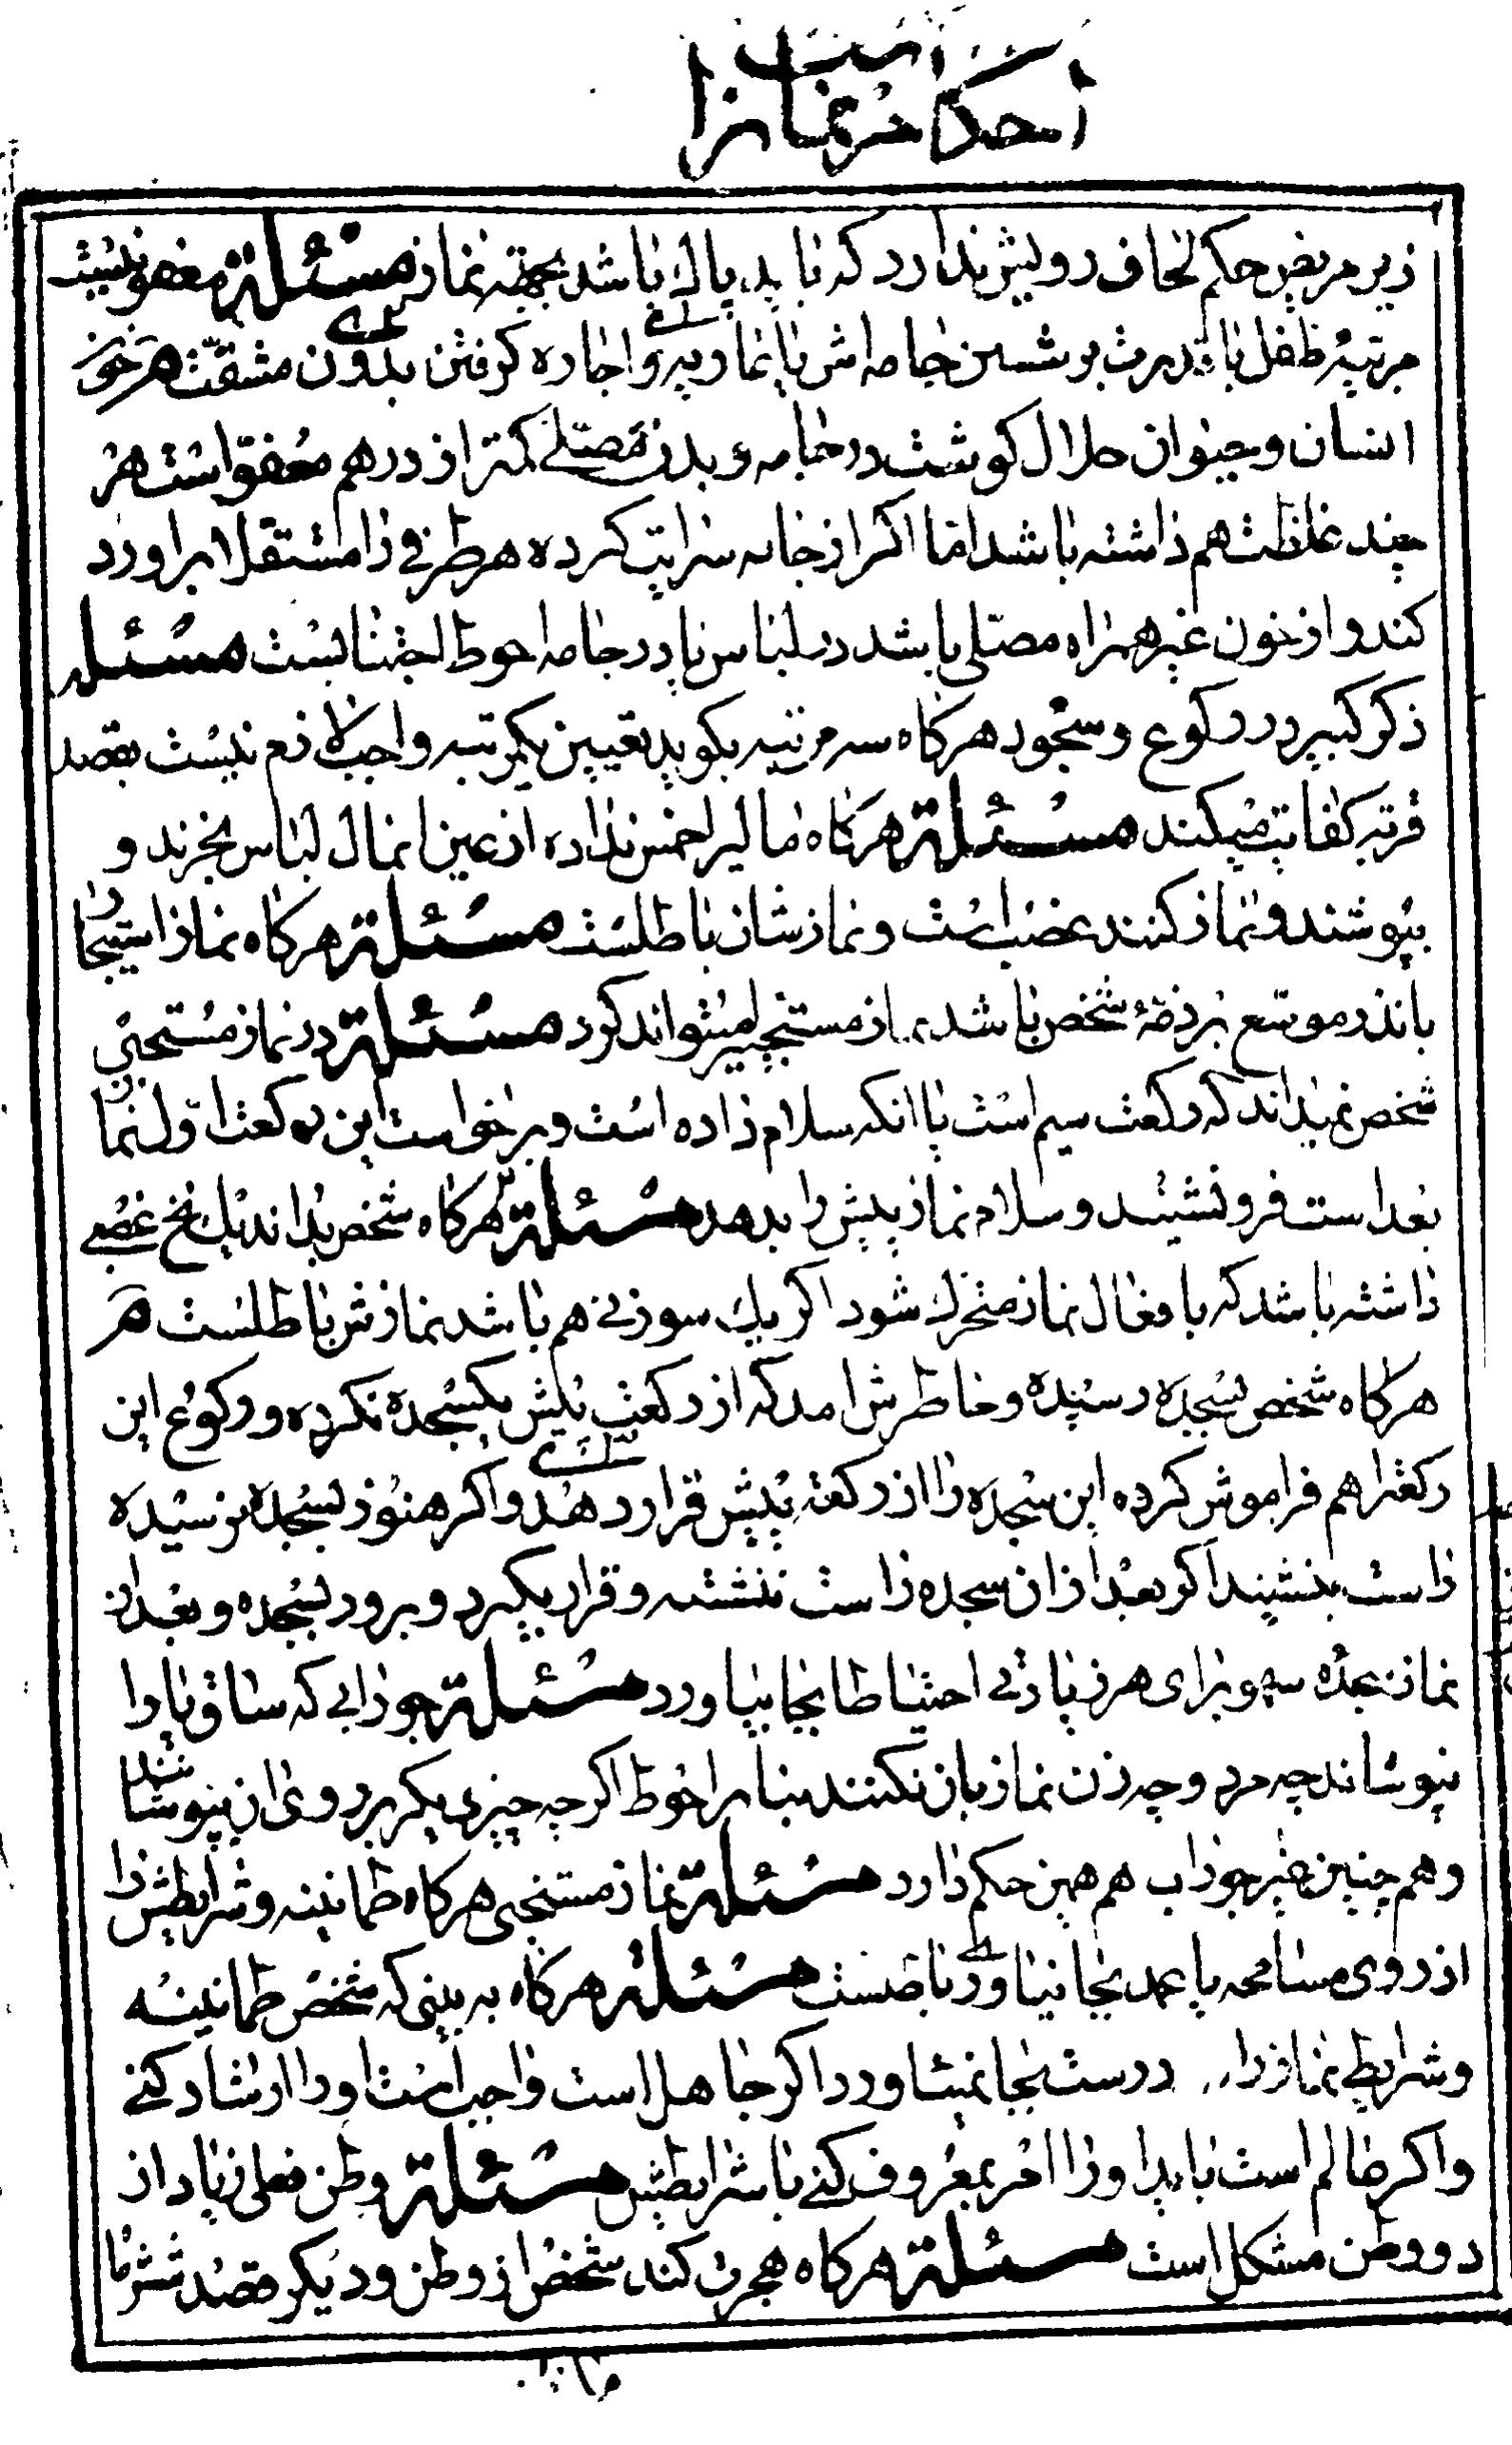 احکام نماز است
زیر مریض حکم لحاف رویش ندارد که باید پاک باشد بجهة نماز مسئلة معفو نیست
مربیه طفل با قدرت بر شستن جامه اش یا بماریه و اجاره کرفتن بدون مشقت هر خون
انسان و حیوان حلال کوشت در جامه و بدن مصلی کمتر از درهم معفو است هر
چند غلظت هم داشته باشد اما اکر از جامه سرایت کرده هر طرفی را مستقلا براورد
کند و از خون غیر همراه مصلی باشد در لباس یا در جامه احوط اجتنابست مسئله
ذکر کبیر در رکوع و سجود هرکاه سه مرتبه بکوید تعیین یکمرتبه واجب لازم نیست بقصد
قربة کفایت میکند مسئلة هرکاه مالیرا خمس نداده از عین انمال لباس بخرند و
بپوشند و نماز کنند غصب است و نمازشان باطلست مسئلة هرکاه نماز استیجار
یا نذر موسّع بر ذمّه شخص باشد نماز مستحبی میتواند کرد مسئلة در نماز مستحبی
شخص نمیداند که رکعت سیم است یا انکه سلام داده است و برخواست این رکعت اول نماز
بعد است فرو نشیند و سلام نماز پیش را بدهد مسئلة هرکاه شخص بداند یک نخ غصبی
داشته باشد که بافعال نماز متحرک شود اکر یک سوزنی هم باشد نمازش باطلست هر
هرکاه شخص بسجده رسیده و خاطرش امد که از رکعت پیش یکسجده نکرده و رکوع این
رکعترا هم فراموش کرده این سجده را از رکعت پیش قرار دهد و اکر هنوز بسجده نرسیده
راست بنشیند اکر بعد از ان سجده راست ننشسته و قرار بکیرد و برود بسجده و بعد از
نماز سجده سهو برای هر زیادتی احتیاطا بجا بیاورد مسئلة جورابی که ساق پا را
نپوشاند چه مرد و چه زن نماز بان نکنند بنا بر احوط اکر چه چیزی دیکر بر روی ان بپوشانند
و هم چنین غیر جوراب هم همین حکم دارد مسئلة نماز مستحبی هرکاه طمانینه و شرایطش را
از روی مسامحه یا عمد بجا نیاورد ناقصست مسئلة هرکاه به بینی که شخص طمانینه
و شرایط نماز را درست بجا نمیاورد اکر جاهل است واجب است او را ارشاد کنی
و اکر عالم است باید او را امر بمعروف کنی با شرایطش مسئلة وطن فعلی زیاد از
دو وطن مشکل است مسئلة هرکاه هجرت کند شخص از وطن و دیکر قصد شش ماه